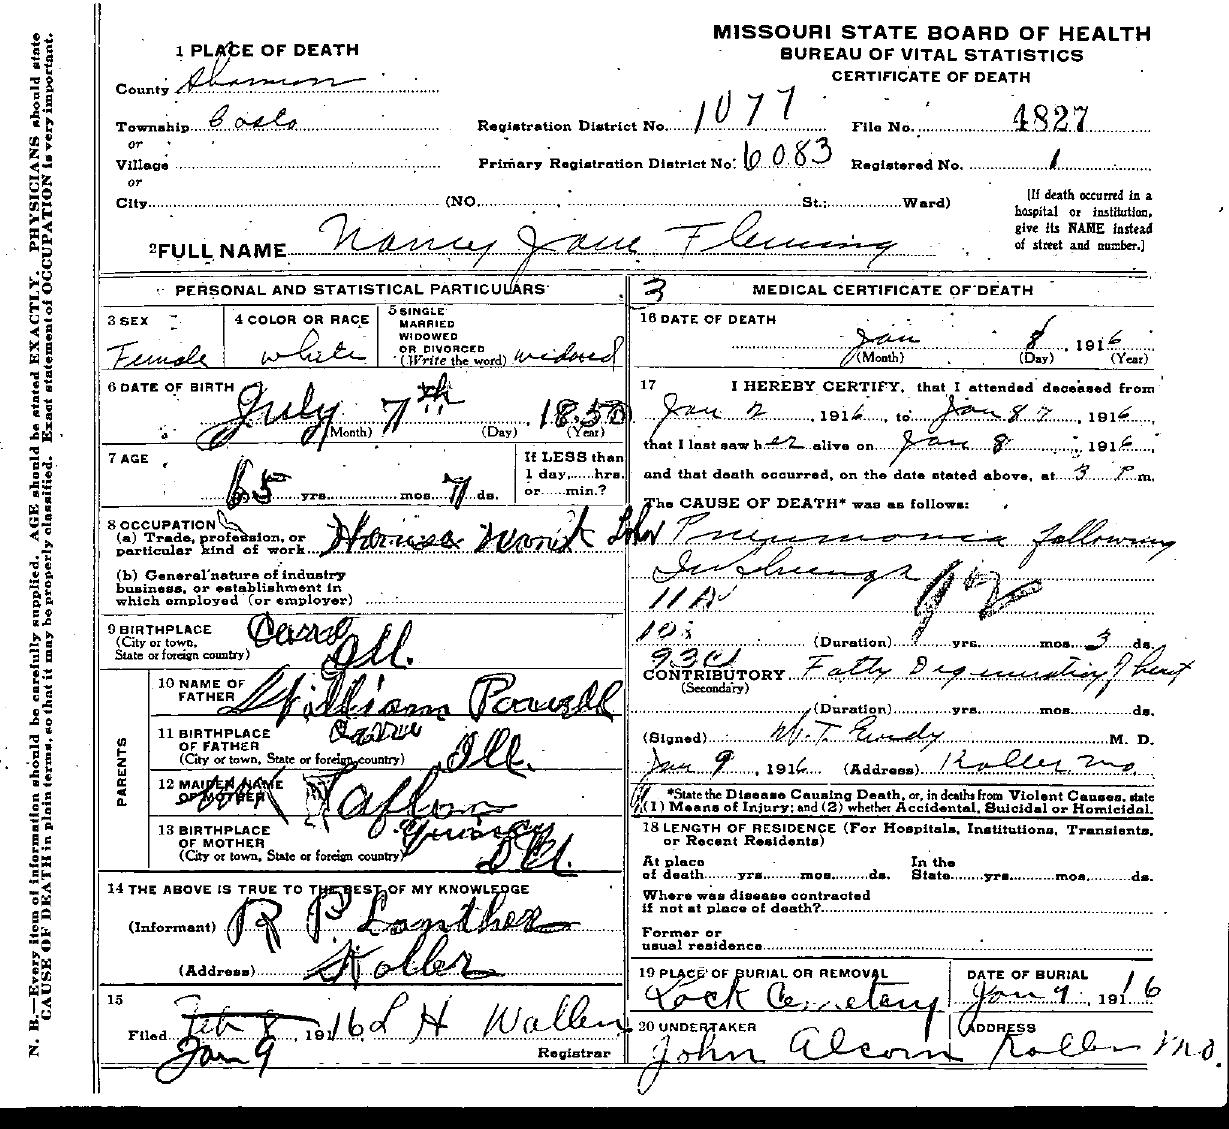 N. B.—Every item of information should be carefully supplied. AGE should be stated EXACTLY. PHYSICIANS should state
CAUSE OF DEATH in plain terms, so that it may be properly classified. Exact statement of OCCUPATION is very important.
MISSOURI STATE BOARD OF HEALTH
BUREAU OF VITAL STATISTICS
CERTIFICATE OF DEATH
1 PLACE OF DEATH
County Shannon
Township
or
Village
or
City (NO. St.; Ward)
Registration District No. 1077
File No. 4827
Primary Registration District No. 6083
Registered No. 1
[If death occurred in a
hospital or institution,
give its NAME instead
of street and number.]
2 FULL NAME Nancy Jane Fleming
PERSONAL AND STATISTICAL PARTICULARS
3 SEX
Female
4 COLOR OR RACE
white
5 SINGLE
MARRIED
WIDOWED
OR DIVORCED
(Write the word) widowed
6 DATE OF BIRTH
July 7th 1850
(Month) (Day) (Year)
7 AGE
65 yrs. mos. 7 ds.
If LESS than
1 day, hrs.
or min.?
8 OCCUPATION
(a) Trade, profession, or
particular kind of work House
(b) General nature of industry
business, or establishment in
which employed (or employer)
9 BIRTHPLACE
(City or town,
State or foreign country)
Ill.
PARENTS
10 NAME OF
FATHER William Powell
11 BIRTHPLACE
OF FATHER
(City or town, State or foreign country)
Ill.
12 MAIDEN NAME
OF MOTHER
13 BIRTHPLACE
OF MOTHER
(City or town, State or foreign country)
Quincy
Ill.
14 THE ABOVE IS TRUE TO THE BEST OF MY KNOWLEDGE
(Informant) R P
(Address) Koller
15
Filed Feb 8, 1916 L H Wallen
Jan 9
Registrar
3 MEDICAL CERTIFICATE OF DEATH
16 DATE OF DEATH
Jan 8, 1916
(Month) (Day) (Year)
17 I HEREBY CERTIFY, that I attended deceased from
Jan 2, 1916, to Jan 8, 1916,
that I last saw her alive on Jan 8, 1916,
and that death occurred, on the date stated above, at 3 P m.
The CAUSE OF DEATH* was as follows:
Lobar Pneumonia following
11 A
(Duration) yrs. mos. 3 ds.
CONTRIBUTORY Fatty Degeneration of heart
(Secondary)
(Duration) yrs. mos. ds.
(Signed) W. T. Eudy M. D.
Jan 9, 1916 (Address) Koller Mo
*State the Disease Causing Death, or, in deaths from Violent Causes, state
(1) Means of Injury; and (2) whether Accidental, Suicidal or Homicidal.
18 LENGTH OF RESIDENCE (For Hospitals, Institutions, Transients,
or Recent Residents)
At place
of death yrs. mos. ds.
In the
State yrs. mos. ds.
Where was disease contracted
if not at place of death?
Former or
usual residence
19 PLACE OF BURIAL OR REMOVAL
Lock Cemetery
DATE OF BURIAL
Jan 9, 1916
20 UNDERTAKER
John Alcorn
ADDRESS
Koller Mo.